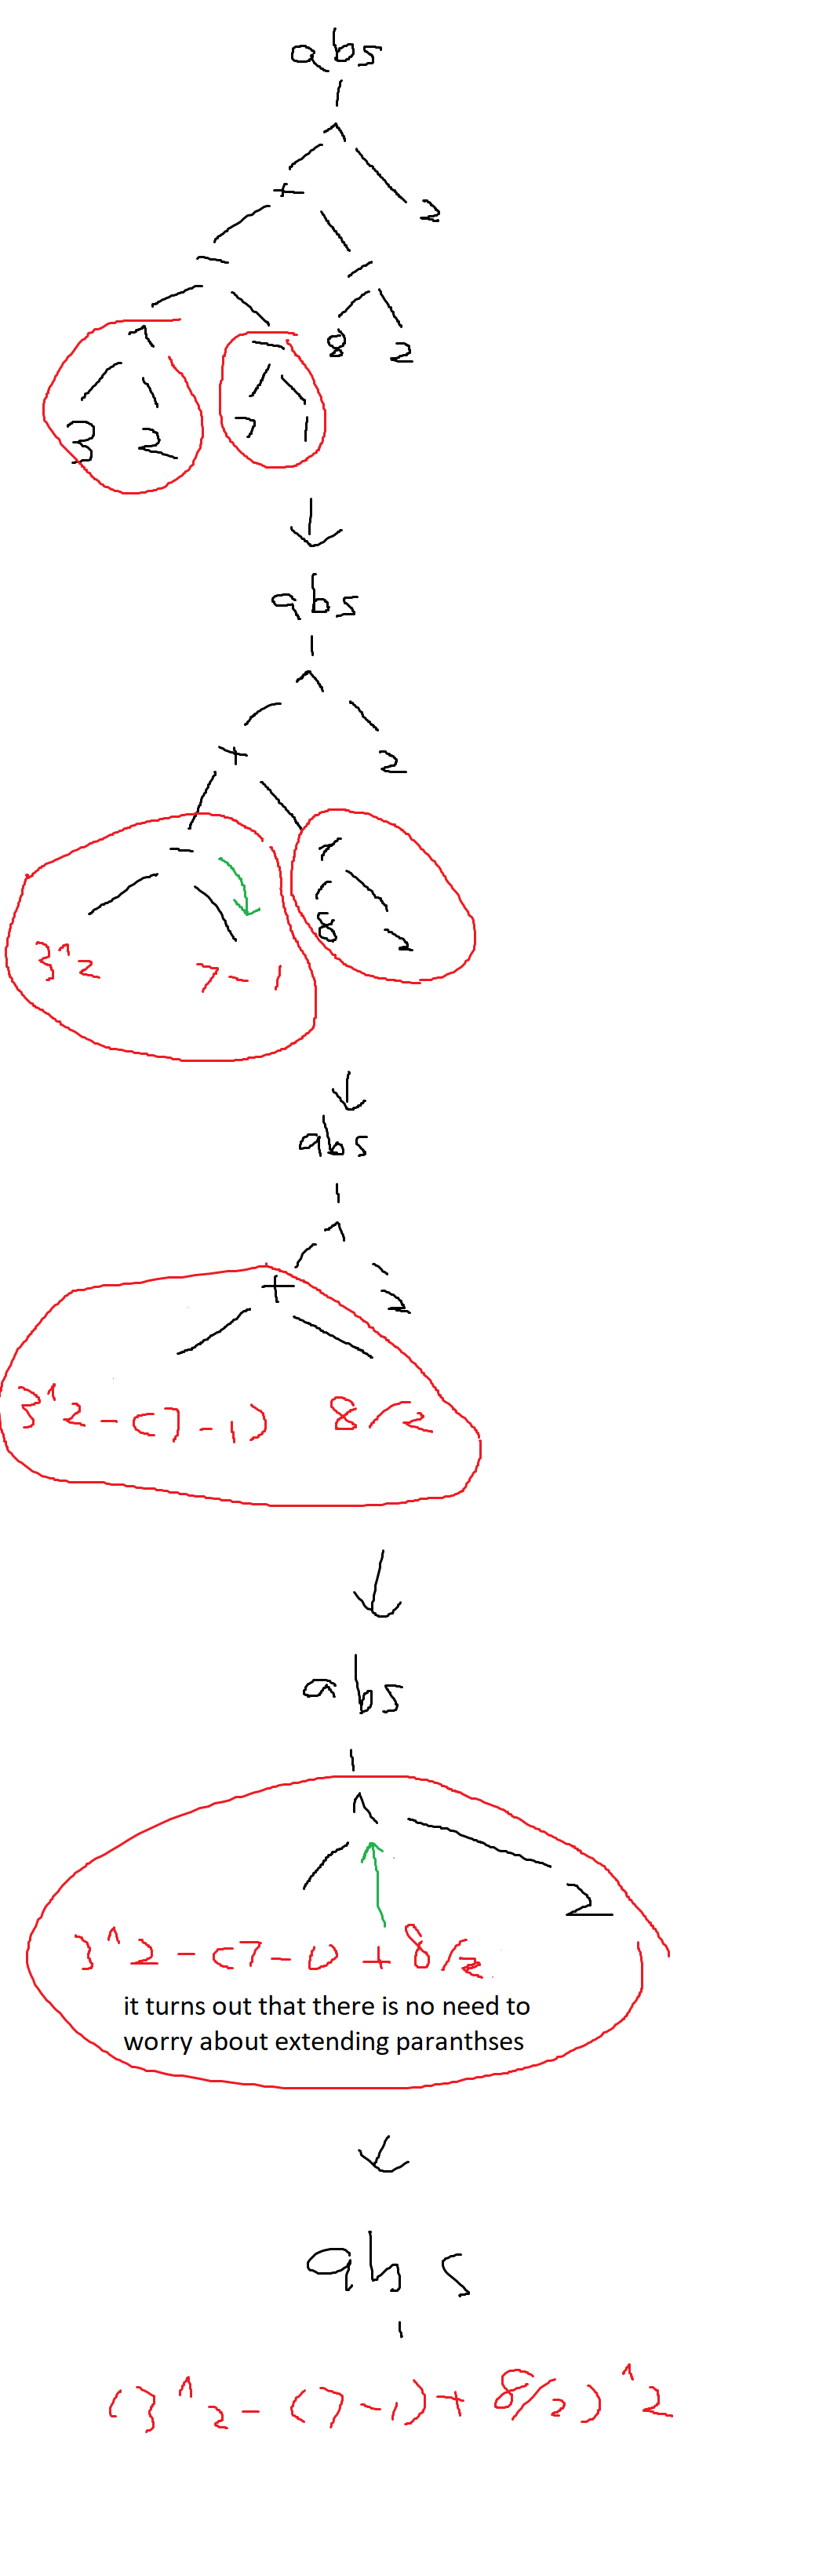 abs
^
+ 2
- /
^ - 8 2
3 2 7 1
abs
^
+ 2
- /
3^2 7-1 8 2
abs
^
+ 2
3^2-(7-1) 8/2
abs
^
2
3^2-(7-1)+8/2
it turns out that there is no need to
worry about extending paranthses
abs
(3^2-(7-1)+8/2)^2